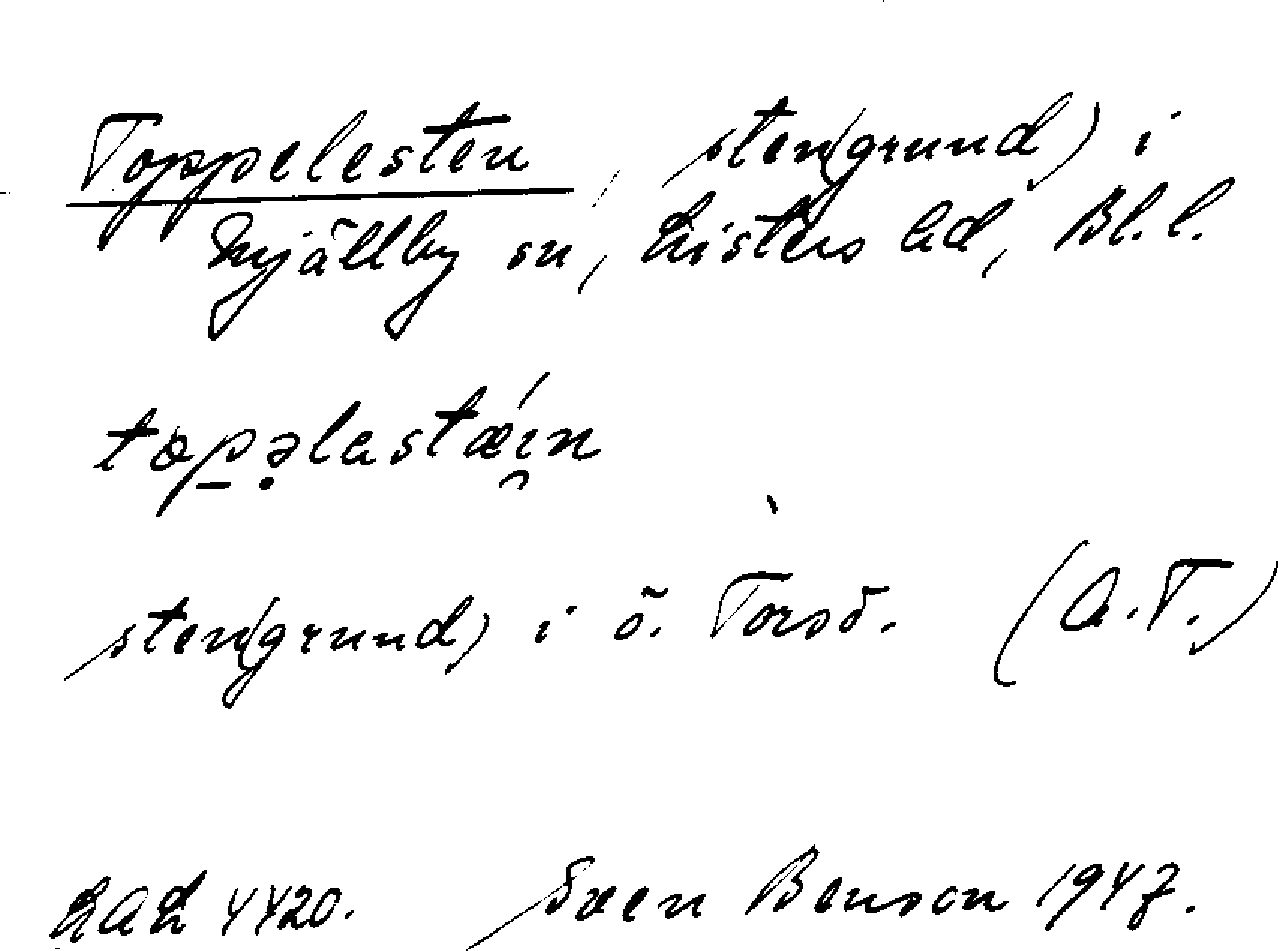 Toppelesten, sten(grund) i
Mjällby sn, Listers hd, Bl. l.
topəlastǽın
sten(grund) i ö. Torsö. (A.T.)
LAL 4420. Sven Benson 1947.